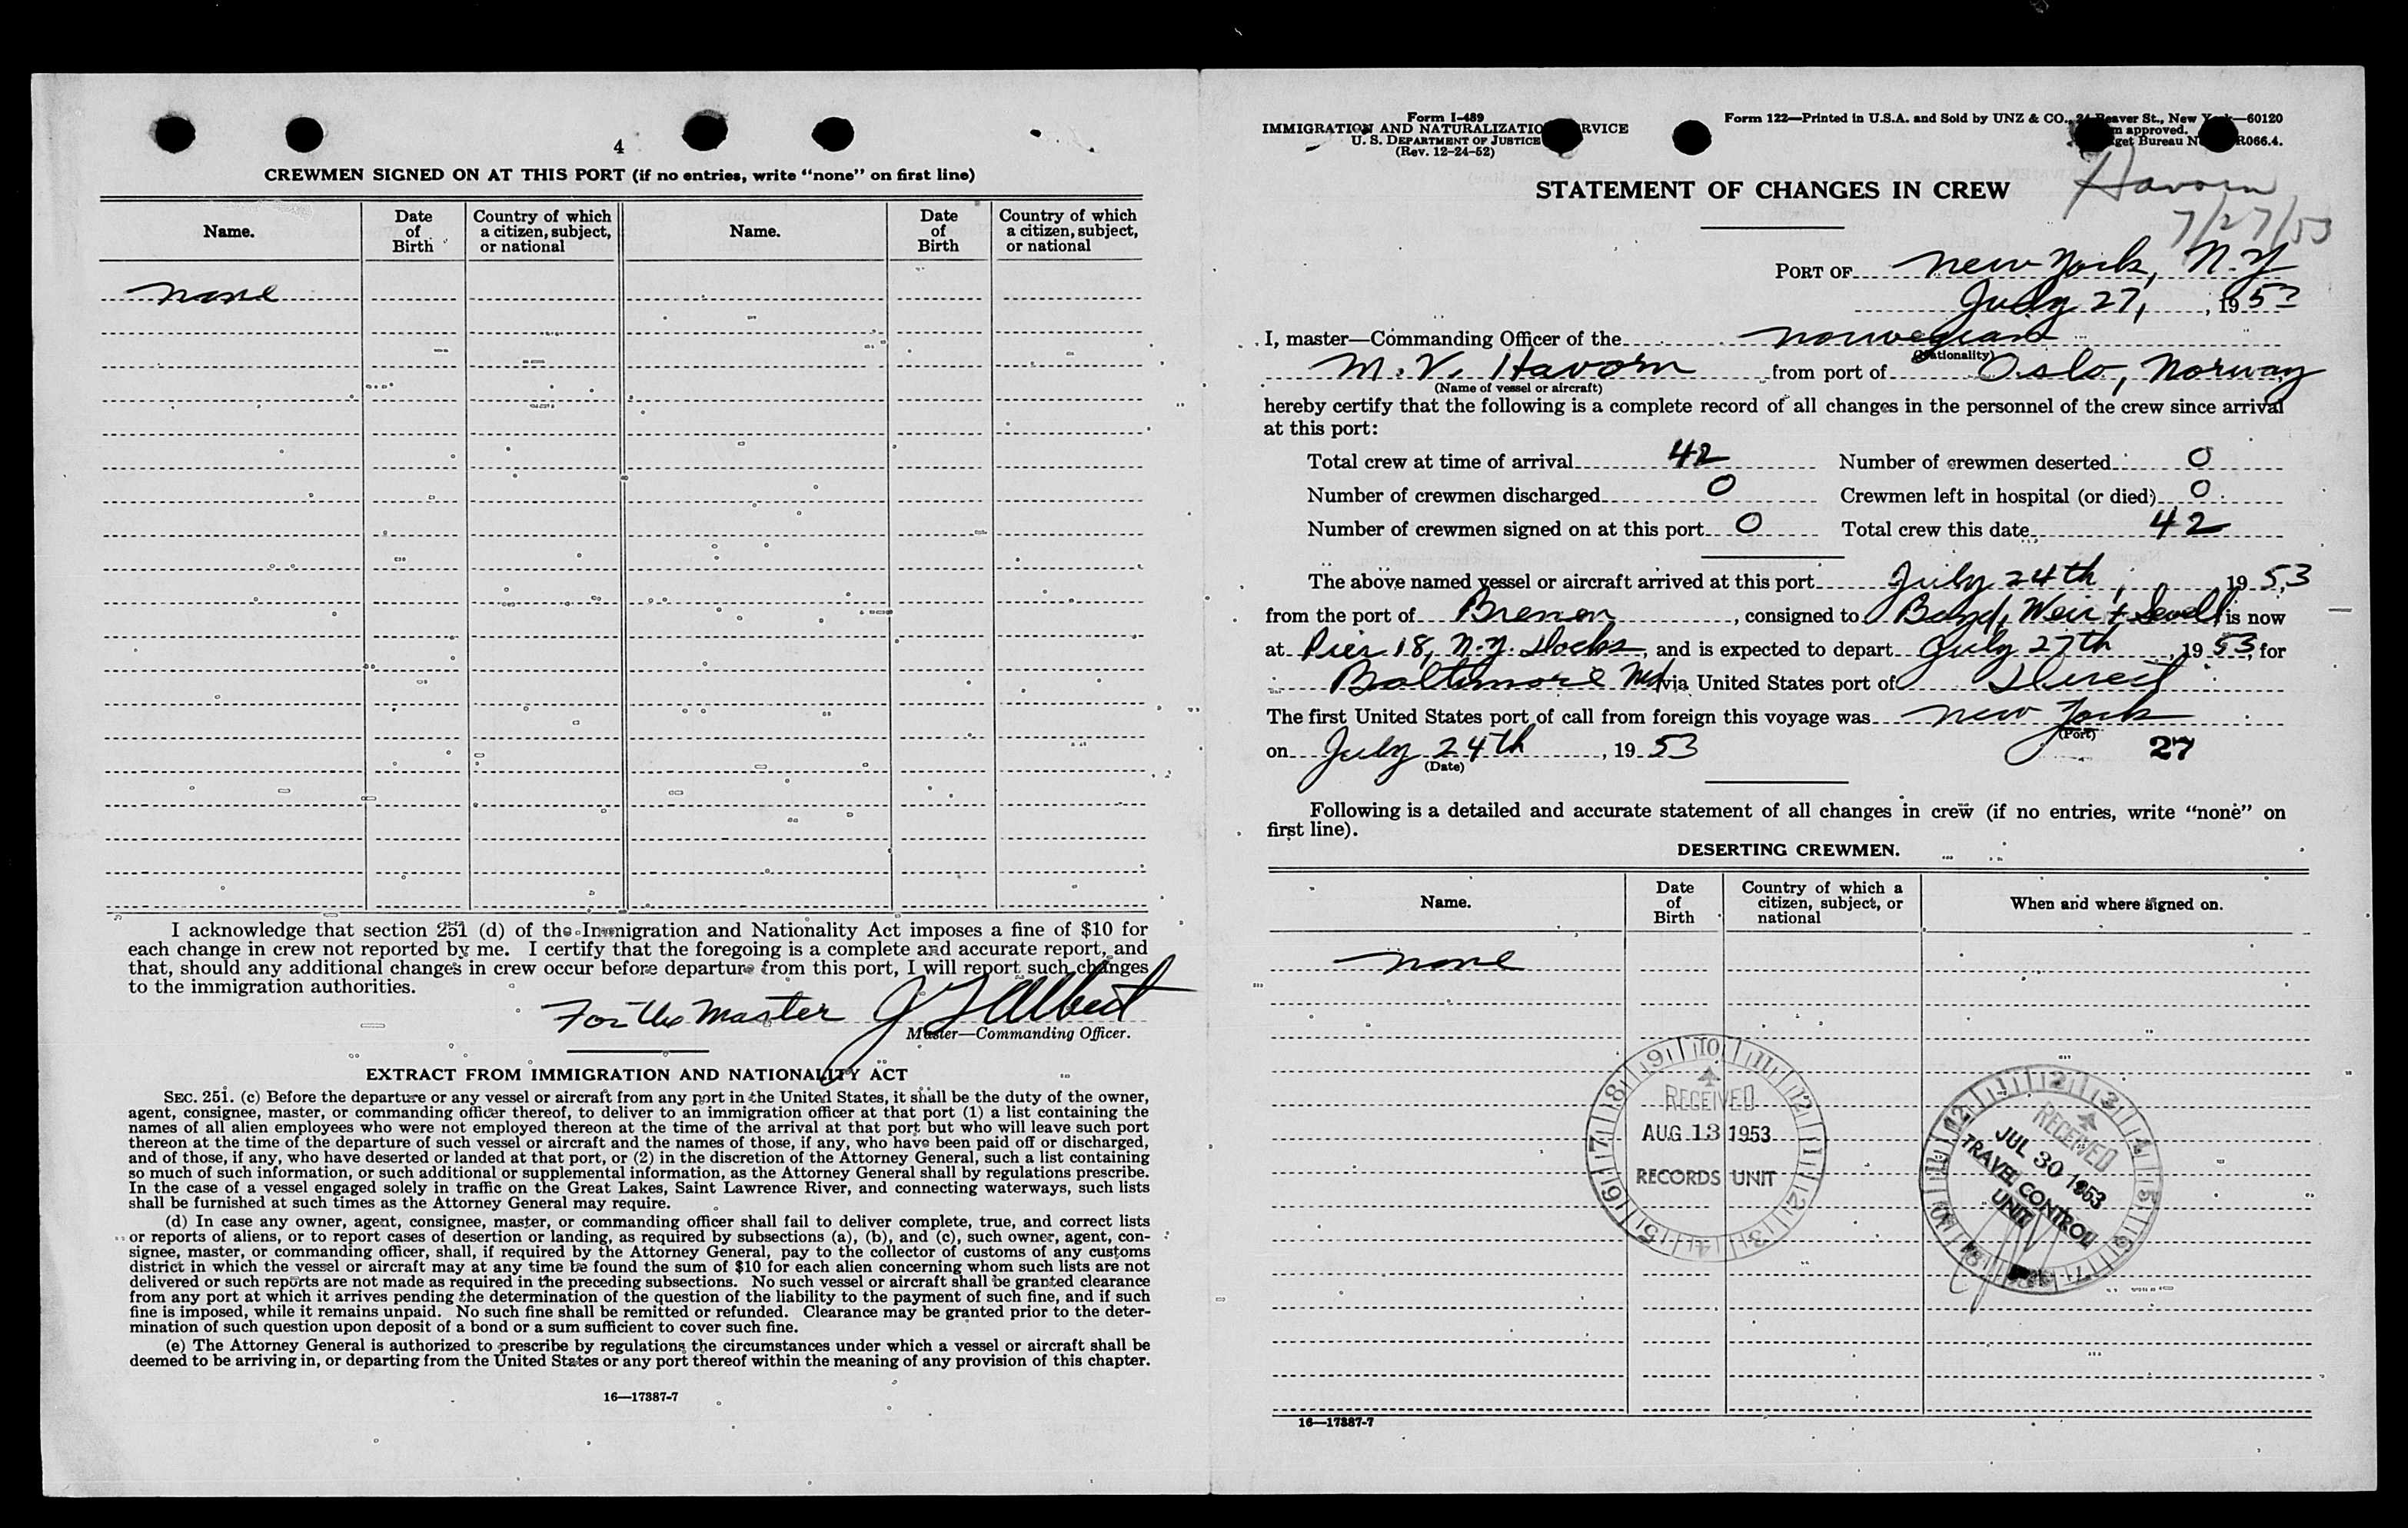 4
CREWMEN SIGNED ON AT THIS PORT (if no entries, write "none" on first line)
Name. Date of Birth Country of which a citizen, subject, or national Name. Date of Birth Country of which a citizen, subject, or national
none
I acknowledge that section 251 (d) of the Immigration and Nationality Act imposes a fine of $10 for
each change in crew not reported by me. I certify that the foregoing is a complete and accurate report, and
that, should any additional changes in crew occur before departure from this port, I will report such changes
to the immigration authorities.
For the Master
Master—Commanding Officer.
EXTRACT FROM IMMIGRATION AND NATIONALITY ACT
SEC. 251. (c) Before the departure or any vessel or aircraft from any port in the United States, it shall be the duty of the owner,
agent, consignee, master, or commanding officer thereof, to deliver to an immigration officer at that port (1) a list containing the
names of all alien employees who were not employed thereon at the time of the arrival at that port but who will leave such port
thereon at the time of the departure of such vessel or aircraft and the names of those, if any, who have been paid off or discharged,
and of those, if any, who have deserted or landed at that port, or (2) in the discretion of the Attorney General, such a list containing
so much of such information, or such additional or supplemental information, as the Attorney General shall by regulations prescribe.
In the case of a vessel engaged solely in traffic on the Great Lakes, Saint Lawrence River, and connecting waterways, such lists
shall be furnished at such times as the Attorney General may require.
(d) In case any owner, agent, consignee, master, or commanding officer shall fail to deliver complete, true, and correct lists
or reports of aliens, or to report cases of desertion or landing, as required by subsections (a), (b), and (c), such owner, agent, con-
signee, master, or commanding officer, shall, if required by the Attorney General, pay to the collector of customs of any customs
district in which the vessel or aircraft may at any time be found the sum of $10 for each alien concerning whom such lists are not
delivered or such reports are not made as required in the preceding subsections. No such vessel or aircraft shall be granted clearance
from any port at which it arrives pending the determination of the question of the liability to the payment of such fine, and if such
fine is imposed, while it remains unpaid. No such fine shall be remitted or refunded. Clearance may be granted prior to the deter-
mination of such question upon deposit of a bond or a sum sufficient to cover such fine.
(e) The Attorney General is authorized to prescribe by regulations the circumstances under which a vessel or aircraft shall be
deemed to be arriving in, or departing from the United States or any port thereof within the meaning of any provision of this chapter.
16—17387-7
Form I-489
IMMIGRATION AND NATURALIZATIO RVICE
U. S. DEPARTMENT OF JUSTICE
(Rev. 12-24-52)
Form 122—Printed in U.S.A. and Sold by UNZ & CO., 24 Beaver St., New Y k—60120
m approved.
get Bureau N R066.4.
STATEMENT OF CHANGES IN CREW
Havorn
7/27/53
PORT OF New York, N.Y
July 27, , 1953
I, master—Commanding Officer of the norwegian
(Nationality)
M.V. Havorn from port of Oslo, Norway
(Name of vessel or aircraft)
hereby certify that the following is a complete record of all changes in the personnel of the crew since arrival
at this port:
Total crew at time of arrival 42 Number of crewmen deserted 0
Number of crewmen discharged 0 Crewmen left in hospital (or died) 0
Number of crewmen signed on at this port 0 Total crew this date 42
The above named vessel or aircraft arrived at this port July 24th, 1953
from the port of Bremen, consigned to Boyd, Weir & Sewell is now
at Pier 18, N.Y. Docks, and is expected to depart July 27th, 1953, for
Baltimore Md via United States port of Direct
The first United States port of call from foreign this voyage was New York
(Port)
on July 24th, 1953 27
(Date)
Following is a detailed and accurate statement of all changes in crew (if no entries, write "none" on
first line).
DESERTING CREWMEN.
Name. Date of Birth Country of which a citizen, subject, or national When and where signed on.
none
RECEIVED
AUG 13 1953
RECORDS UNIT
RECEIVED
JUL 30 1953
TRAVEL CONTROL
UNIT
16—17387-7